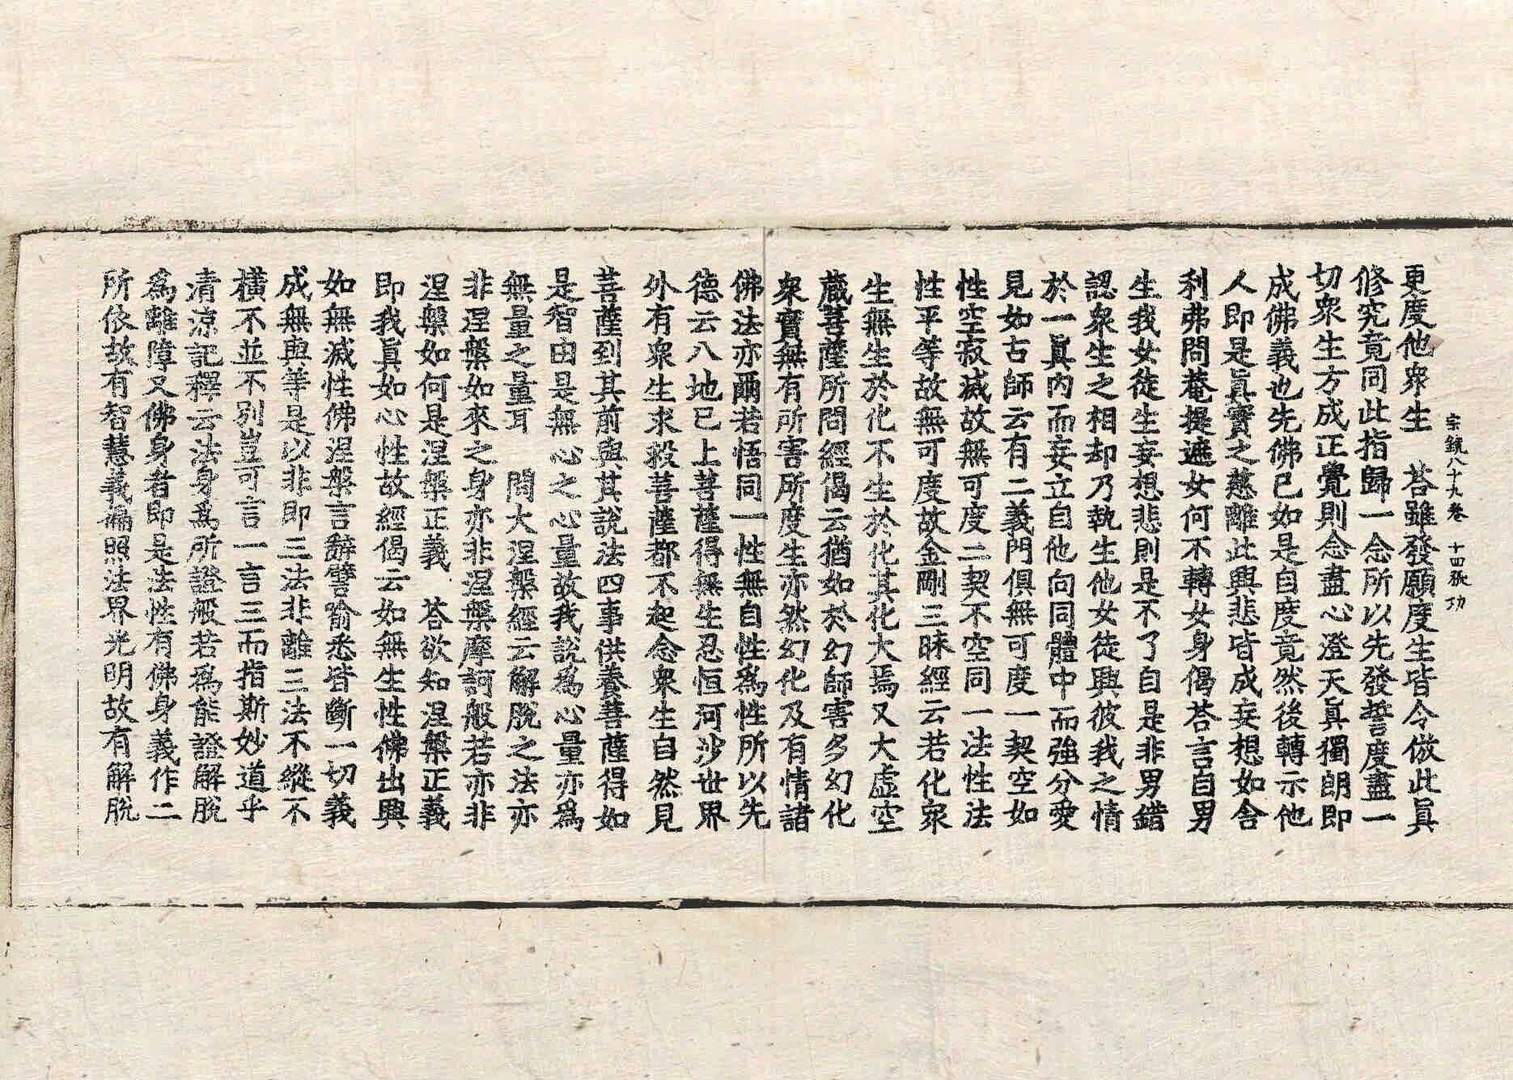 宗鏡八十九卷　十四張　功
更度他衆生　荅雖發願度生皆令倣此眞
修究竟同此指歸一念所以先發誓度盡一
切衆生方成正覺則念盡心澄天眞獨朗即
成佛義也先佛已如是自度竟然後轉示他
人即是眞實之慈離此興悲皆成妄想如舎
利弗問菴提遮女何不轉女身偈荅言自男
生我女徒生妄想悲則是不了自是非男錯
認衆生之相却乃執生他女徒興彼我之情
於一眞内而妄立自他向同體中而強分愛
見如古師云有二義門俱無可度一契空如
性空寂滅故無可度二契不空同一法性法
性平等故無可度故金剛三昧經云若化衆
生無生於化不生於化其化大焉又大虚空
藏菩薩所問經偈云猶如於幻師害多幻化
衆實無有所害所度生亦然幻化及有情諸
佛法亦爾若悟同一性無自性爲性所以先
德云八地已上菩薩得無生忍恒河沙世界
外有衆生求殺菩薩都不起念衆生自然見
菩薩到其前與其說法四事供養菩薩得如
是智由是無心之心量故我說爲心量亦爲
無量之量耳　問大涅槃經云解脫之法亦
非涅槃如來之身亦非涅槃摩訶般若亦非
涅槃如何是涅槃正義　荅欲知涅槃正義
即我眞如心性故經偈云如無生性佛出興
如無滅性佛涅槃言辭譬喻悉皆斷一切義
成無與等是以非即三法非離三法不縱不
橫不並不別豈可言一言三而指斯妙道乎
清涼記釋云法身爲所證般若爲能證解脫
爲離障又佛身者即是法性有佛身義作二
所依故有智慧義徧照法界光明故有解脫